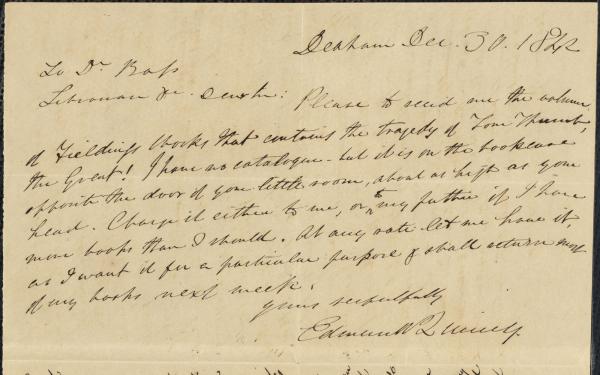 Dedham Dec. 30. 1842
To Dr Bass
Librarian &c. Please to send me the volume
of Fieldings Works that contains the tragedy of Tom Thumb,
the Great! I have no catalogue - but it is on the bookcase
opposite the door of your little room, about as high as your
head. Charge it either to me, or to my father if I have
more books than I should. At any rate let me have it,
as I want it for a particular purpose & shall return most
of my books, next week.
yours respectfully
Edmund Quincy.